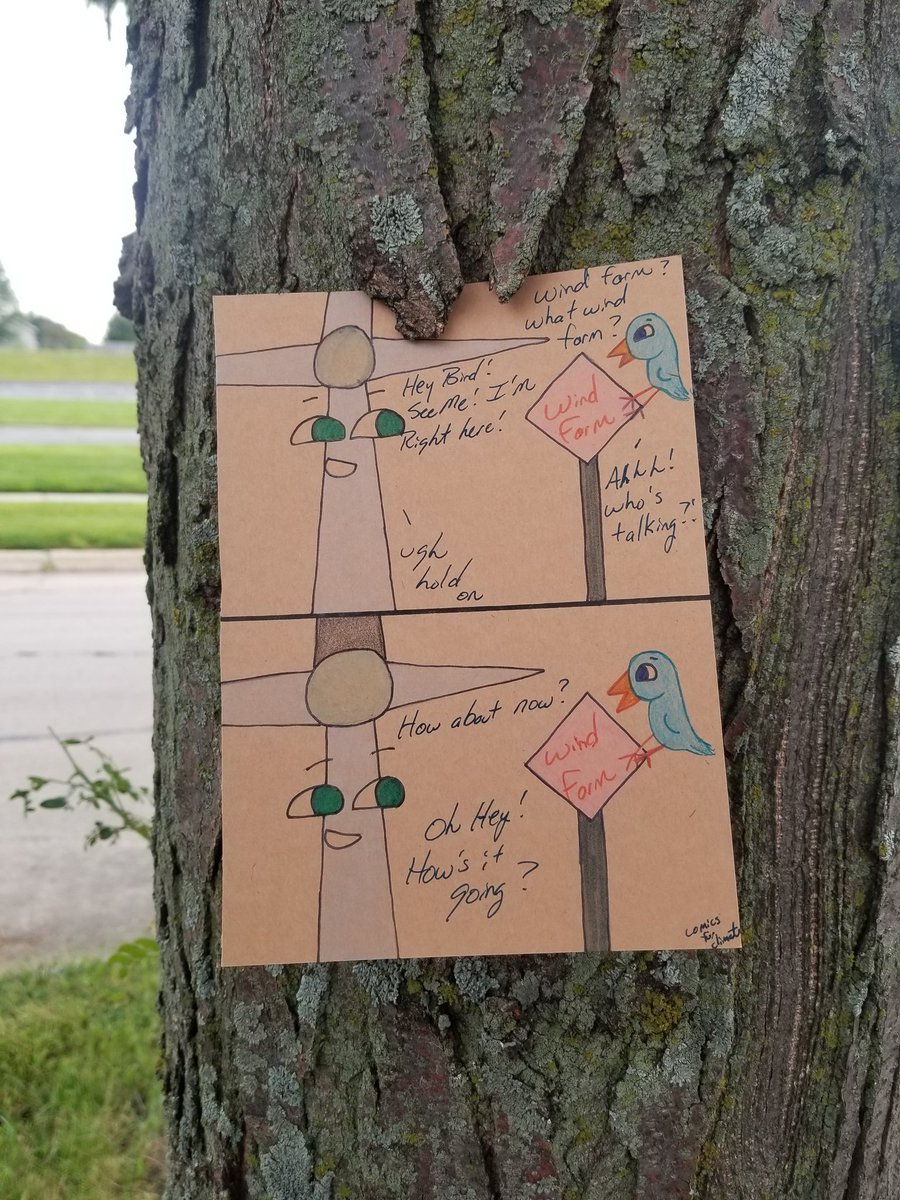 Wind farm?
what wind
farm?
Hey Bird!
See Me! I'm
Right here!
Wind
Farm
Ahhh!
who's
talking?!
ugh
hold
on
How about now?
Wind
Farm
Oh Hey!
How's it
going?
comics
for
climate